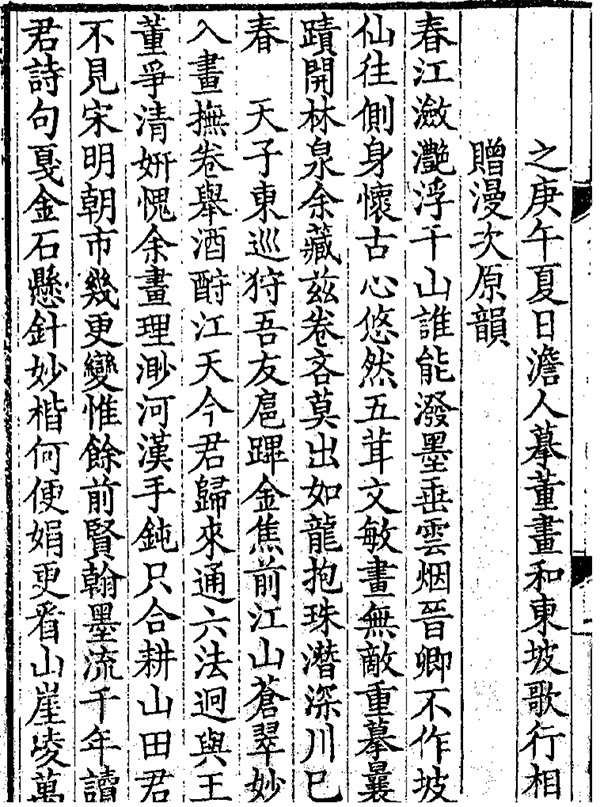 之庚午夏日澹人摹董畫和東坡歌行相
贈漫次原韻
春江瀲灩浮千山誰能潑墨垂雲烟晉卿不作坡
仙往側身懷古心悠然五茸文敏畫無敵重摹曩
蹟開林泉余藏兹卷吝莫出如龍抱珠潛深川巳
春　天子東巡狩吾友扈蹕金焦前江山蒼翠妙
入畫撫卷舉酒酹江天今君歸來通六法迥與王
董爭清妍愧余畫理渺河漢手鈍只合耕山田君
不見宋明朝市幾更變惟餘前賢翰墨流千年讀
君詩句戛金石懸針妙楷何便娟更看山崖凌萬